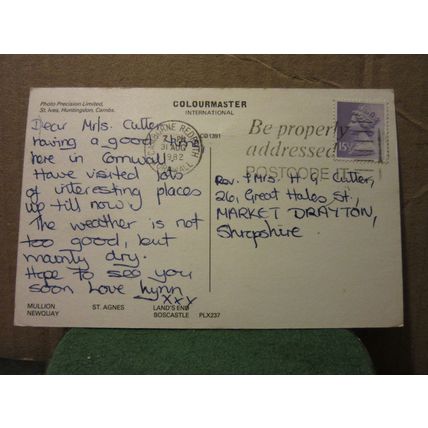 Photo Precision Limited,
St. Ives, Huntingdon, Cambs.
COLOURMASTER
INTERNATIONAL
Dear Mr/s. Cutter
having a good time
here in Cornwall
Have visited lots
of interesting places
up till now.
The weather is not
too good, but
mainly dry.
Hope to see you
soon Love Lynn
xxx
CAMBORNE REDRUTH
31 AUG
1982
CORNWALL
Be properly
addressed
POSTCODE IT
15½P
Rev. & Mrs. H G Cutter,
26, Great Hales St,
MARKET DRAYTON,
Shropshire
MULLION
NEWQUAY
ST. AGNES
LAND'S END
BOSCASTLE
PLX237